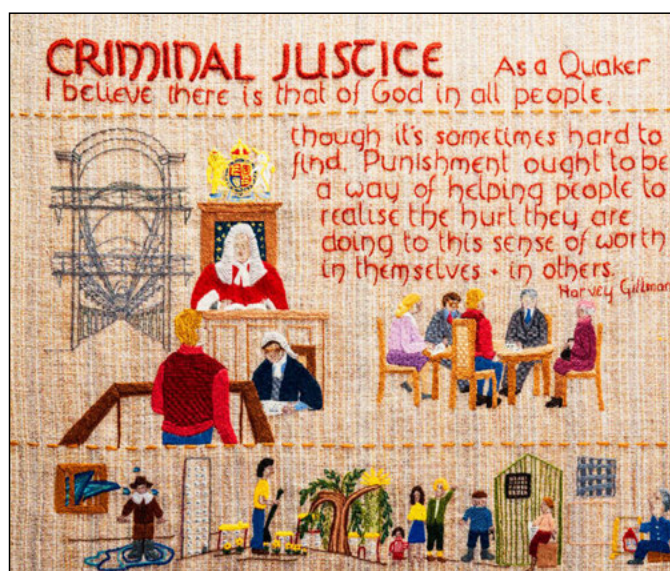 CRIMINAL JUSTICE As a Quaker
I believe there is that of God in all people,
though it's sometimes hard to
find. Punishment ought to be
a way of helping people to
realise the hurt they are
doing to this sense of worth
in themselves + in others.
Harvey Gillman